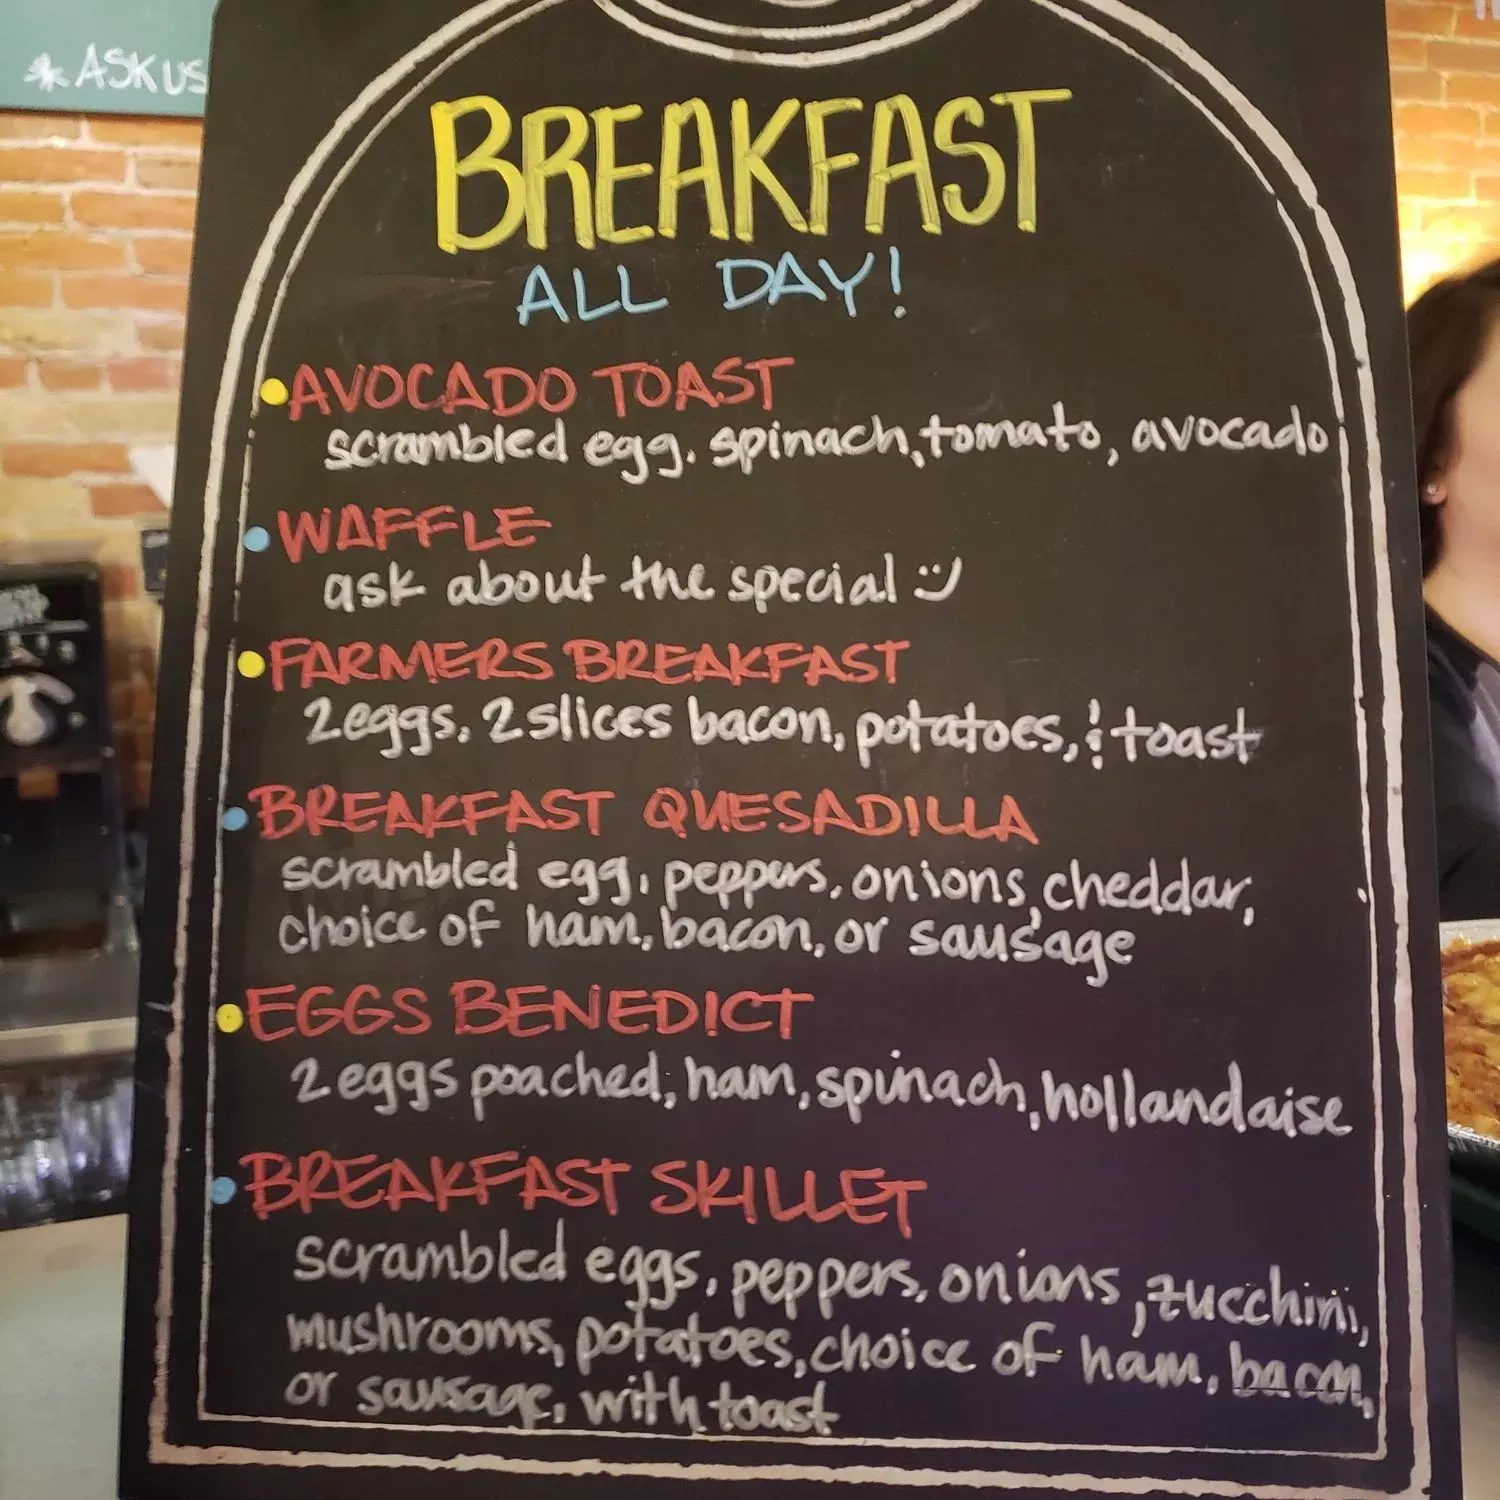 * ASK US
BREAKFAST
ALL DAY!
AVOCADO TOAST
scrambled egg, spinach, tomato, avocado
WAFFLE
ask about the special :)
FARMERS BREAKFAST
2 eggs, 2 slices bacon, potatoes, & toast
BREAKFAST QUESADILLA
scrambled egg, peppers, onions, cheddar,
choice of ham, bacon, or sausage
EGGS BENEDICT
2 eggs poached, ham, spinach, hollandaise
BREAKFAST SKILLET
scrambled eggs, peppers, onions, zucchini,
mushrooms, potatoes, choice of ham, bacon,
or sausage, with toast